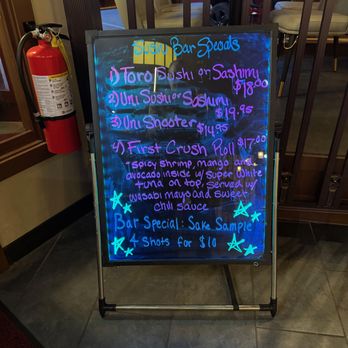 Sushi Bar Specials
1) Toro Sushi or Sashimi
$18.00
2) Uni Sushi or Sashimi
$19.95
3) Uni Shooter $14.95
4) First Crush Roll $17.00
*Spicy shrimp, mango and
avocado inside w/ super white
tuna on top, served w/
wasabi mayo and sweet
chili sauce
Bar Special: Sake Sample
4 Shots for $10